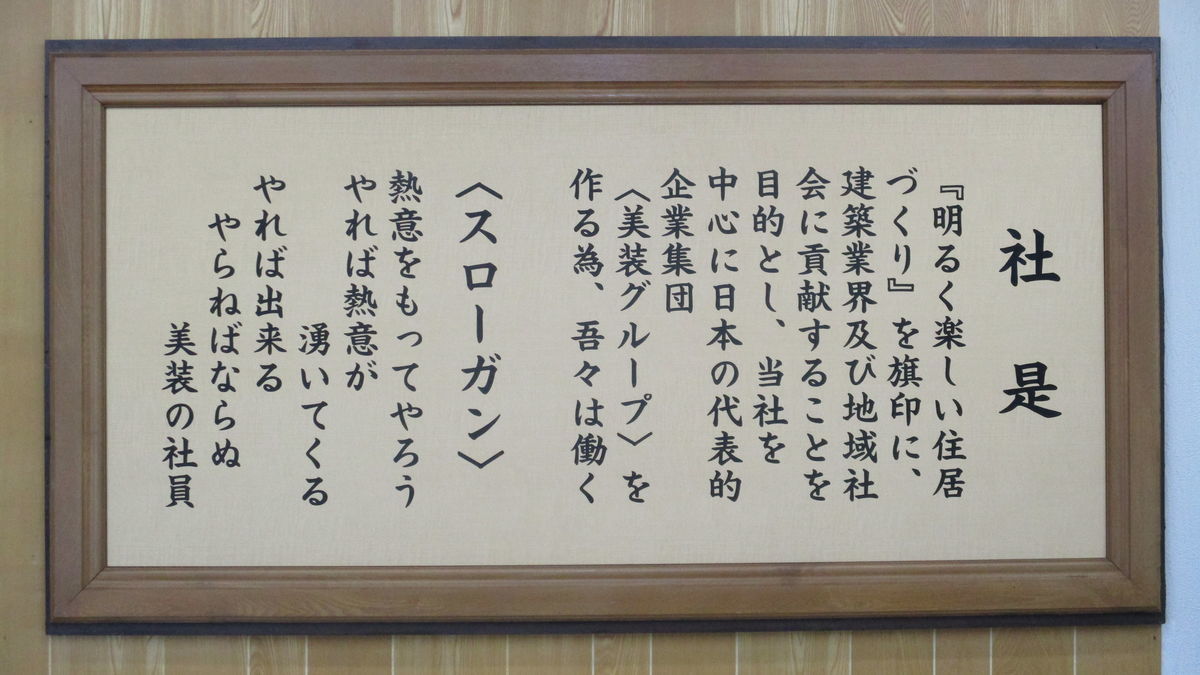 社是
『明るく楽しい住居
づくり』を旗印に、
建築業界及び地域社
会に貢献することを
目的とし、当社を
中心に日本の代表的
企業集団
〈美装グループ〉を
作る為、吾々は働く
〈スローガン〉
熱意をもってやろう
やれば熱意が
湧いてくる
やれば出来る
やらねばならぬ
美装の社員